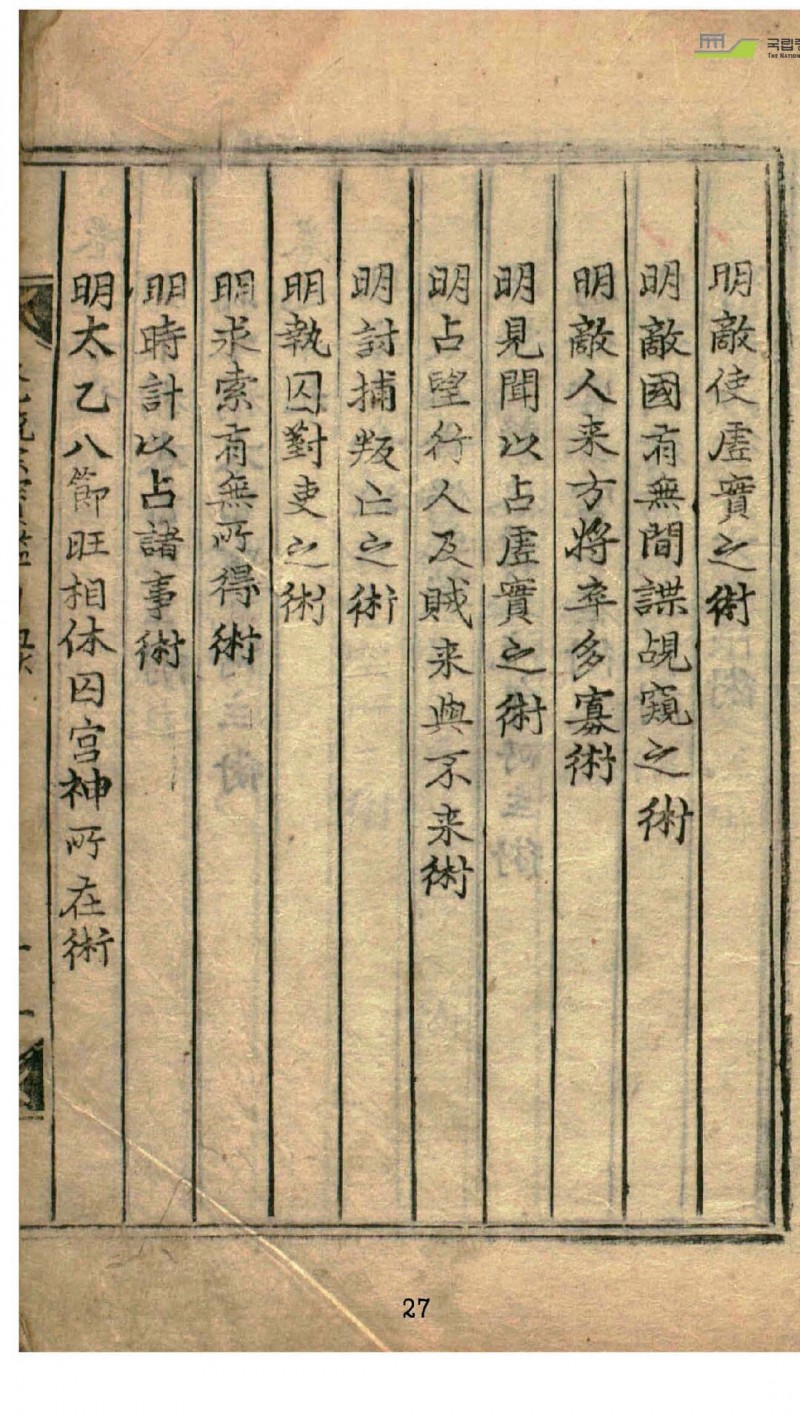 明敵使虛實之術
明敵國有無間諜覘窺之術
明敵人来方將卒多寡術
明見聞以占虛實之術
明占望行人及賊来與不来術
明討捕叛亡之術
明執囚對吏之術
明求索有無所得術
明時計以占諸事術
明太乙八節旺相休囚宮神所在術
국립중
THE NATION
27